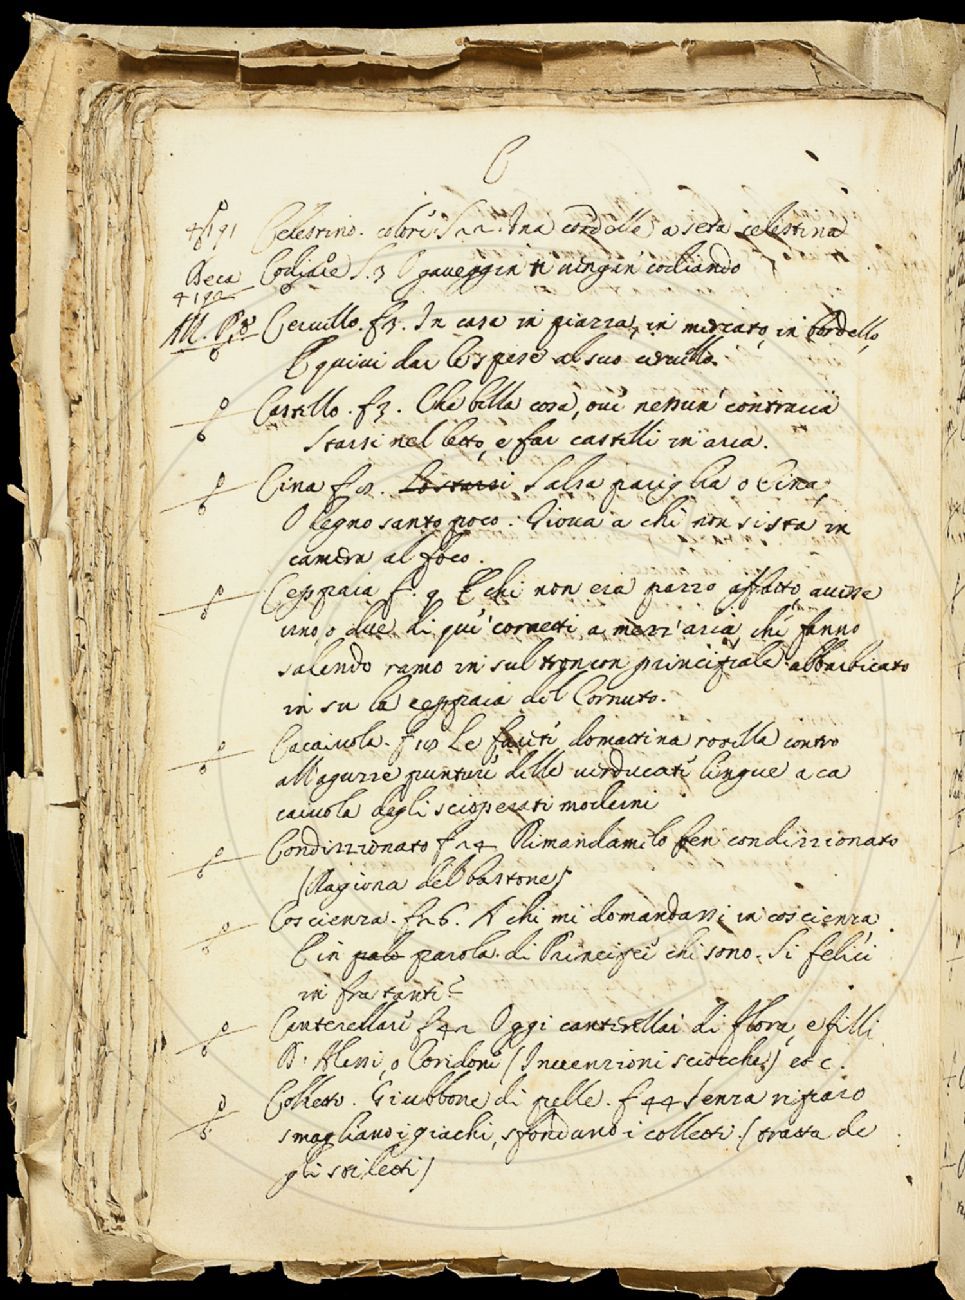 C
Celestino. colore. Una cordella a seta celestina
Beca Cogliare f. 3 O gaveggin ti vengin cogliando
4190
M. P. Cervello. f 3. In casa in piazza, in mercato, in bordello,
E quivi dar le spese al suo cervello.
Castello. f 3. Che bella cosa, ove nessun' contraria
Starsi nel letto, e far castelli in aria.
Cina f Salsa pariglia o Cina,
O legno santo poco. Giova a chi non si sta in
camera al foco.
Ceppaia f. 9 E chi non era pazzo affatto, avere
uno, o due di que' cornetti a mezz'aria, che fanno
salendo ramo in sul troncon principale abbarbicato
in su la ceppaia del Cornuto.
Cacaiuola. f Le domattina con
all' punture delle lingue a ca
caiuola degli scioperati moderni
Condizzionato f 24 Rimandamelo ben condizzionato
(Ragiona del bastone)
Coscienza. f 26. A chi mi domandassi in coscienza
E in palo parola di Principe chi sono. Si felici
in fra tanti?
Canterellare f Oggi canterellai di Flora, e Filli
D' Alessi, o Coridone (Invenzioni sciocche) et c.
Colletto. Giubbone di pelle. f 44 Senza riparo
smagliano i giachi, sfondano i colletti (tratta de
gli stiletti)